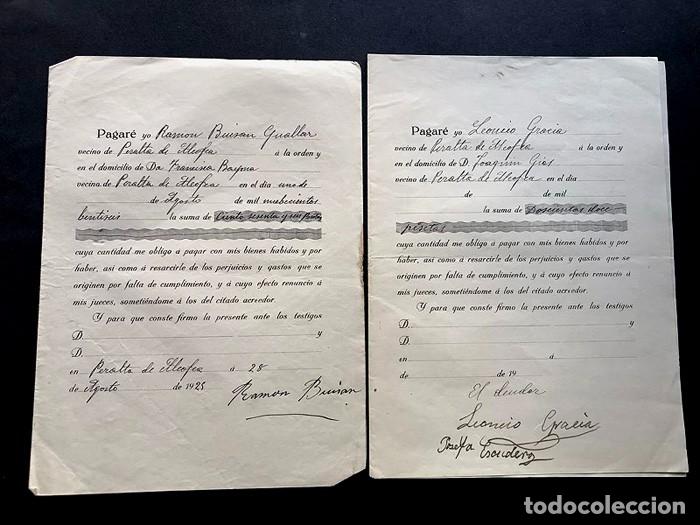 Pagaré yo Ramon Buisan Guallar
vecino de Peralta de Alcofea á la orden y
en el domicilio de Da Francisca
vecina de Peralta de Alcofea en el dia uno de
de Agosto de mil nuebecientos
bentiseis la suma de Ciento sesenta y seis Ptas
cuya cantidad me obligo a pagar con mis bienes habidos y por
haber, así como á resarcirle de los perjuicios y gastos que se
originen por falta de cumplimiento, y á cuyo efecto renuncio á
mis jueces, sometiéndome á los del citado acreedor.
Y para que conste firmo la presente ante los testigos
D. y
D.
en Peralta de Alcofea á 28
de Agosto de 1925
Ramon Buisan
Pagaré yo Leoncio Gracia
vecino de Peralta de Alcofea á la orden y
en el domicilio de D. Joaquin Gias
vecino de Peralta de Alcofea en el dia
de de mil
la suma de Doscientas doce
pesetas
cuya cantidad me obligo a pagar con mis bienes habidos y por
haber, así como á resarcirle de los perjuicios y gastos que se
originen por falta de cumplimiento, y á cuyo efecto renuncio á
mis jueces, sometiéndome á los del citado acreedor.
Y para que conste firmo la presente ante los testigos
D. y
D.
en á
de de 19
El deudor
Leoncio Gracia
Josefa Escudero
todocoleccion